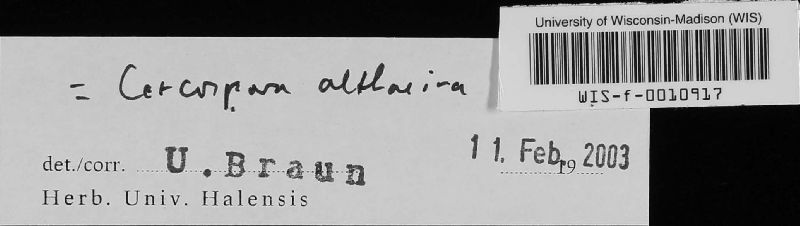 University of Wisconsin-Madison (WIS)
WIS-f-0010917
= Cercospora althaeina
det./corr. U. Braun 11. Feb. 19 2003
Herb. Univ. Halensis